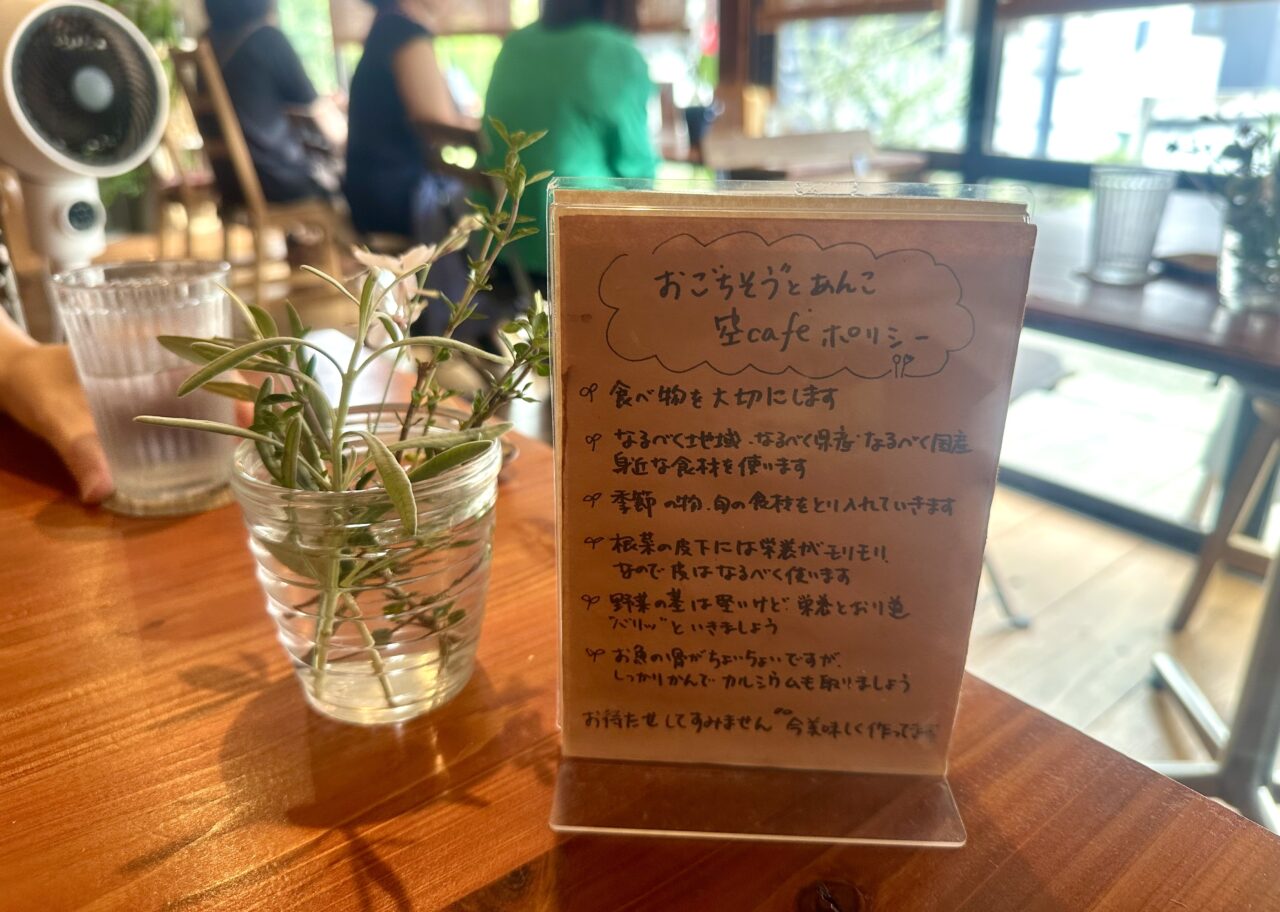 おごちそうとあんこ
空cafe ポリシー
食べ物を大切にします
なるべく地域、なるべく県産、なるべく国産
身近な食材を使います
季節の物、旬の食材をとり入れていきます
根菜の皮下には栄養がモリモリ、
なので皮はなるべく使います
野菜の茎は堅いけど、栄養とおり道
"バリッ"といきましょう
お魚の骨がちょいちょいですが、
しっかりかんでカルシウムも取りましょう
お待たせしてすみません。今美味しく作ってます